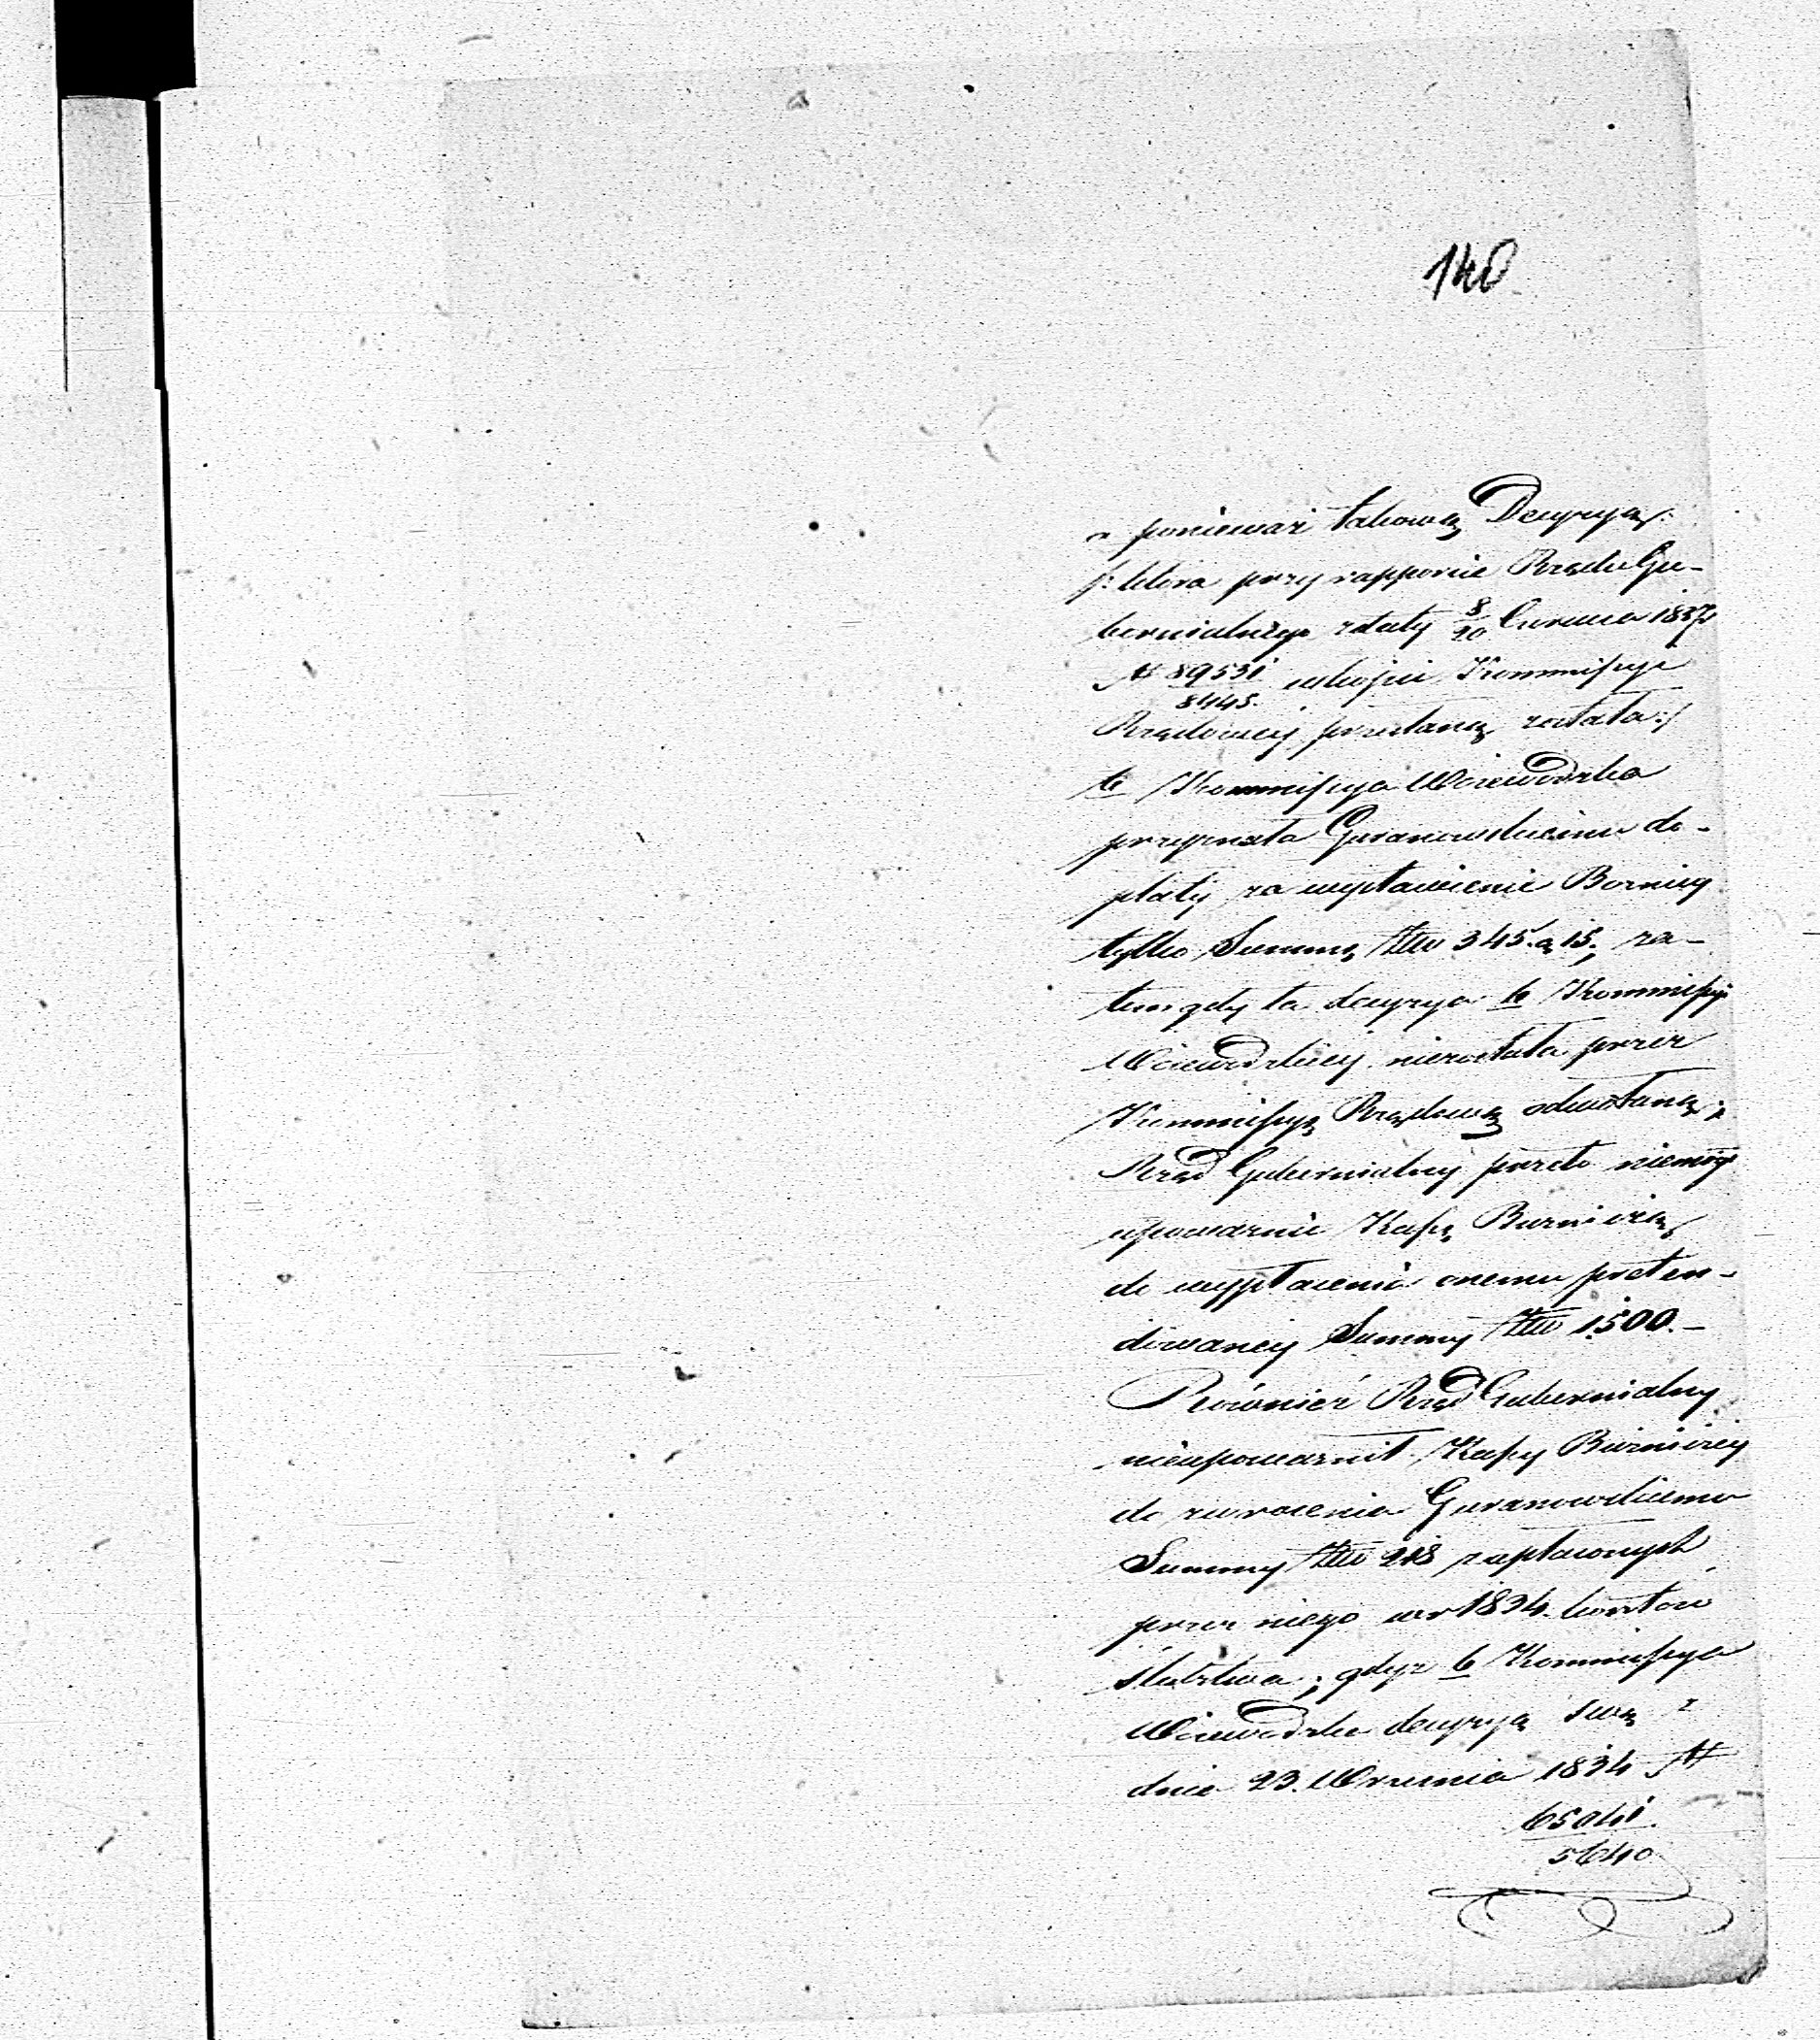 140
a ponieważ takową Decyzyą
/: która przy rapporcie Rządu Gu-
bernialnego z daty 8/20 Czerwca 1837
N 89531/8445. w kopii Kommissyi
Rządowej przesłaną została :/
b Kommissya Woiewodzka
przyznała Guranowskiemu do-
płaty za wystawienie Bożnicy
tylko Summę Złł 345. g 15; za-
tem gdy ta decyzya b Kommissyi
Woiewodzkiej niezostała przez
Kommissyą Rządową odwołaną;
Rząd Gubernialny przeto niemógł
upoważnić Kassę Bożniczą
do wypłacenia onemu preten-
dowaney Summy Złł 1500.-
Również Rząd Gubernialny
nieupoważnił Kassy Bożniczej
do zwrócenia Guranowskiemu
Summy Złł 218 zapłaconych
przez niego w r 1834. kosztów
śledztwa; gdyż b Kommissya
Woiewodzka decyzyą swą z
dnia 23. Września 1834 N
65041/5640